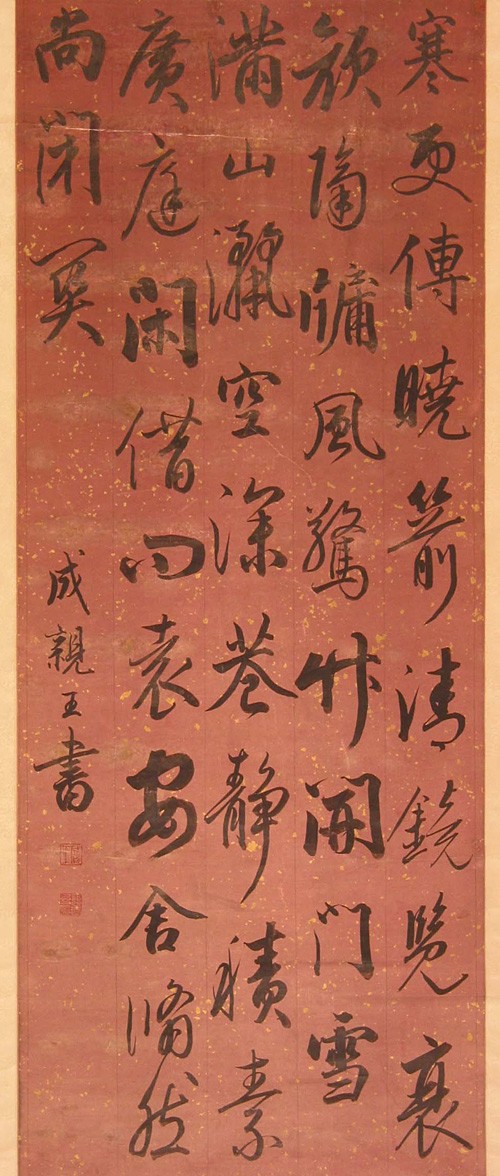 寒更傳曉箭清鏡覽衰
顏隔牖風驚竹開門雪
滿山灑空深巷靜積素
廣庭閑借問袁安舍翛然
尚閉關
成親王書